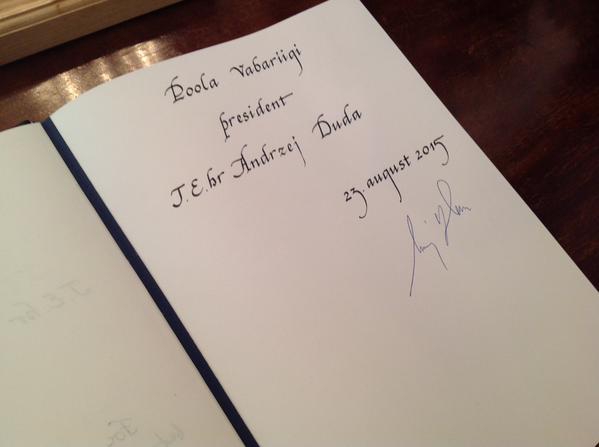 Poola Vabariigi
president
T.E.hr Andrzej Duda
23. august 2015
T.E.hr